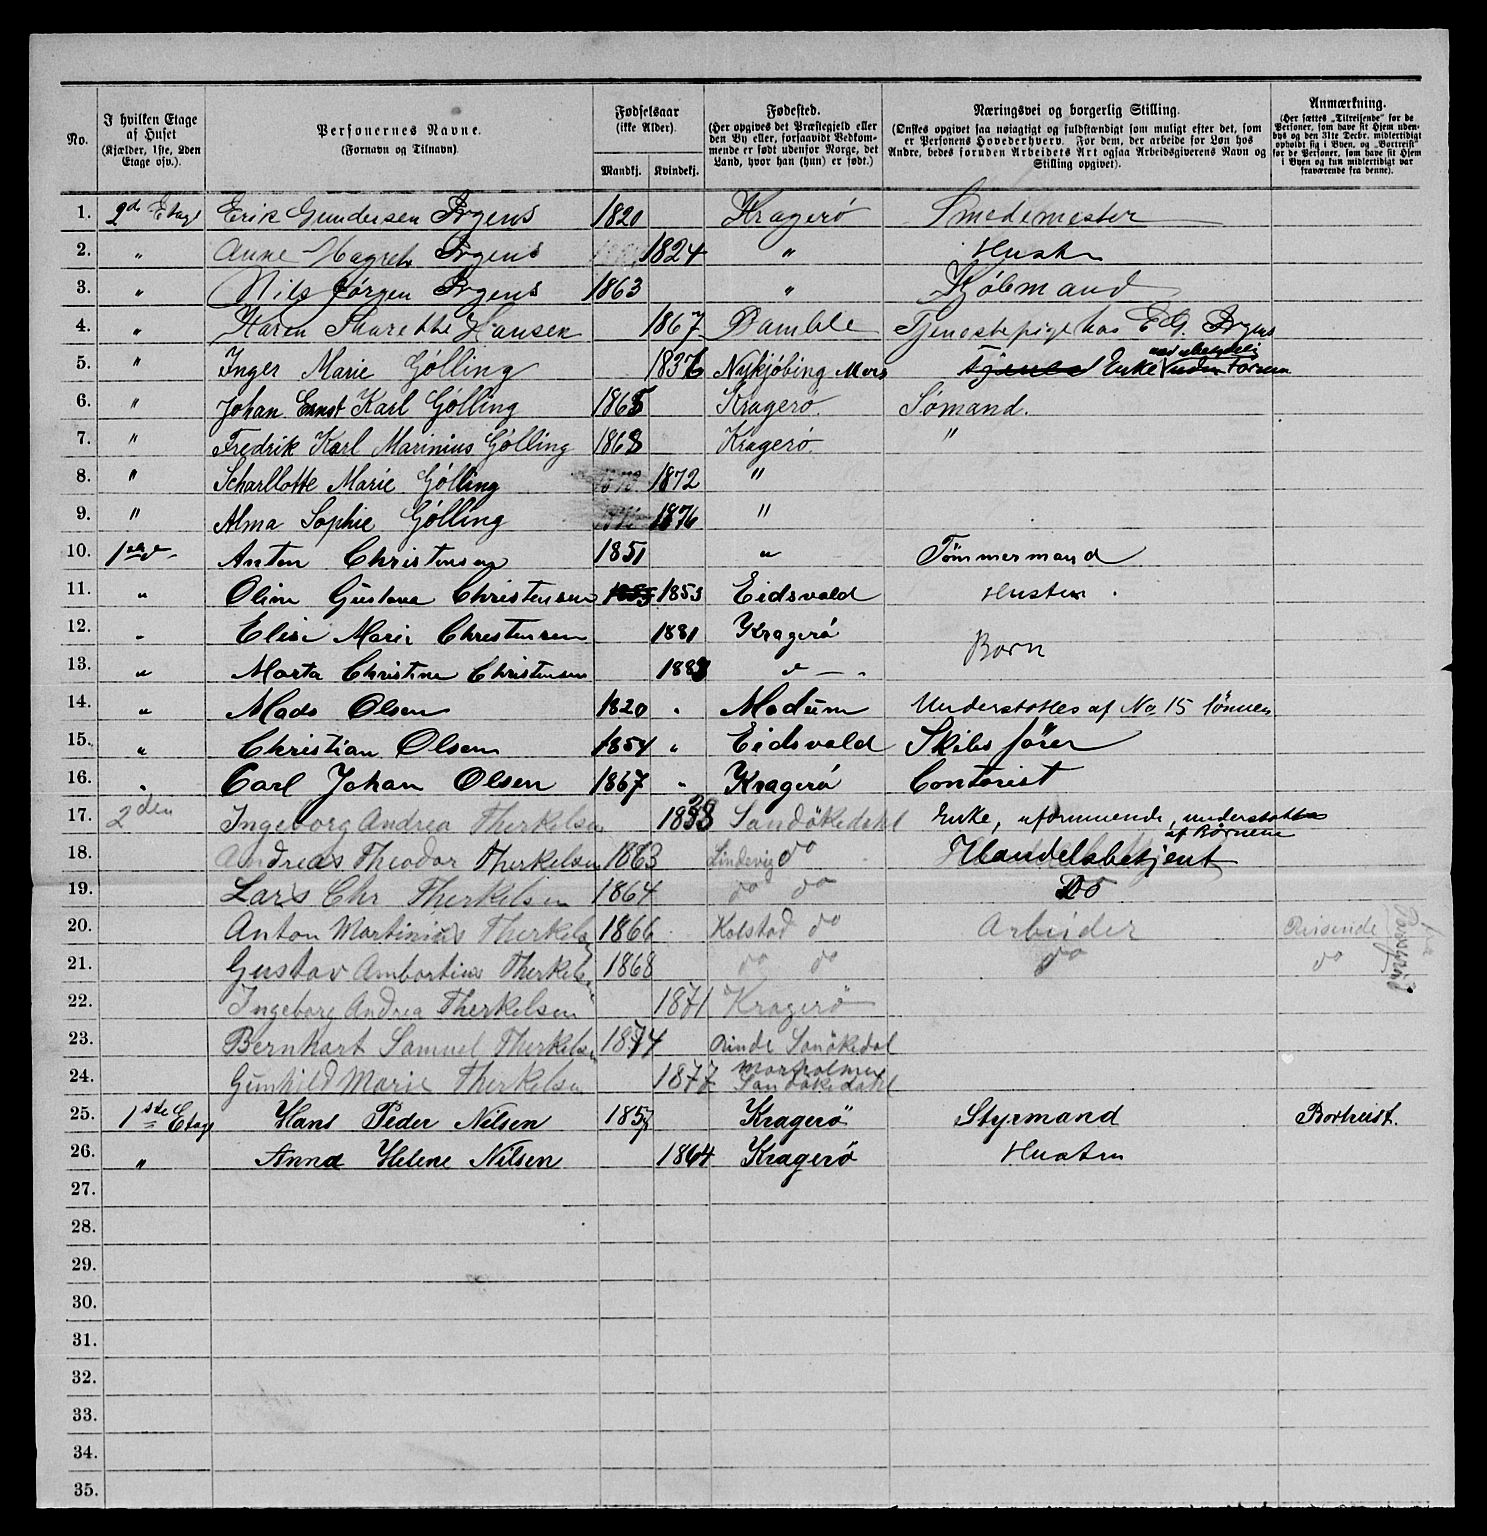 No.
I hvilken Etage af Huset (Kjælder, 1ste, 2den Etage osv.).
Personernes Navne. (Fornavn og Tilnavn).
Fødselsaar (ikke Alder).
Mandkj. Kvindekj.
Fødested. (Her opgives det Præstegjeld eller den By eller, forsaavidt Vedkommende er født udenfor Norge, det Land, hvor han (hun) er født.)
Næringsvei og borgerlig Stilling. (Ønskes opgivet saa nøiagtigt og fuldstændigt som muligt efter det, som er Personens Hovederhverv. For dem, der arbeide for Løn hos Andre, bedes foruden Arbeidets Art ogsaa Arbeidsgiverens Navn og Stilling opgivet).
Anmærkning. (Her sættes „Tilreisende“ for de Personer, som have sit Hjem udenbys og den 31te Decbr. midlertidigt opholdt sig i Byen, og „Bortreist“ for de Personer, som have sit Hjem i Byen og kun midlertidigt var fraværende fra denne).
1. 2de Etage Erik Gundersen Irgens 1820 Kragerö Smedemester
2. " Anne Magreth Irgens 1824 " Hustru
3. " Nils Jørgen Irgens 1863 " Kjöbmand
4. " Karen Hansen 1867 Bamble Tjenestepige hos E G. Irgens
5. " Inger Marie Gölling 1836 Nykjöbing Mors Enke
6. " Johan Ernst Karl Gölling 1865 Kragerö. Sömand.
7. " Fredrik Karl Marinius Gölling 1868 Kragerö. "
8. " Scharllotte Marie Gölling 1872 "
9. " Alma Sophie Gölling 1876 "
10. Anton Christensen 1851 " Tömmermand
11. " Oline Gustava Christensen 1853 1853 Eidsvold Hustru
12. " Elise Marie Christensen 1881 Kragerö
Born
13. " Marta Christine Christensen 1883
14. " Mads Olsen 1820 Modum Understøttes af No 15 Sönnen
15. " Christian Olsen 1854 " Eidsvold Skibsförer
16. " Carl Johan Olsen 1867 " Kragerö Contorist
17. 2den Ingeborg Andrea Therkelsen Sandökedahl Enke, uformuende, understøttes
af Børnene
18. Andreas Theodor Therkelsen 1863 Lindevig do Handelsbetjent
19. Lars Chr Therkelsen 1864 do do Do
20. Anton Martinius Therkelsen 1866 Kolstad do Arbeider Reisende
21. Gustav Ambortius Therkelsen 1868 do do do do
22. Ingeborg Andrea Therkelsen 1871 Kragerö
23. Bernhart Samuel Therkelsen 1874 Rinde Sanökedal
24. Gunhild Marie Therkelsen 1877 Sandökedahl
25. 1ste Etage Hans Peder Nilsen 1857 Kragerö Styrmand Bortreist.
26. " Anna Helene Nilsen 1864 Kragerö Hustru
27.
28.
29.
30.
31.
32.
33.
34.
35.